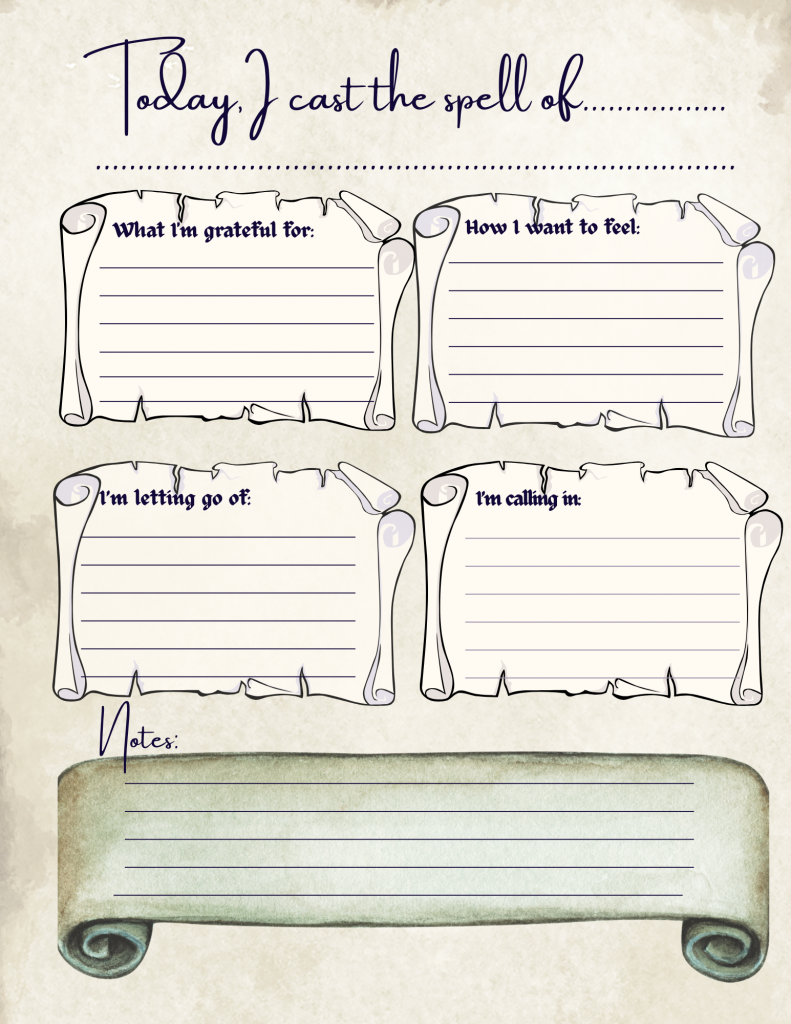 Today, I cast the spell of.................
.............................................................................
What I'm grateful for:
How I want to feel:
I'm letting go of:
I'm calling in:
Notes: